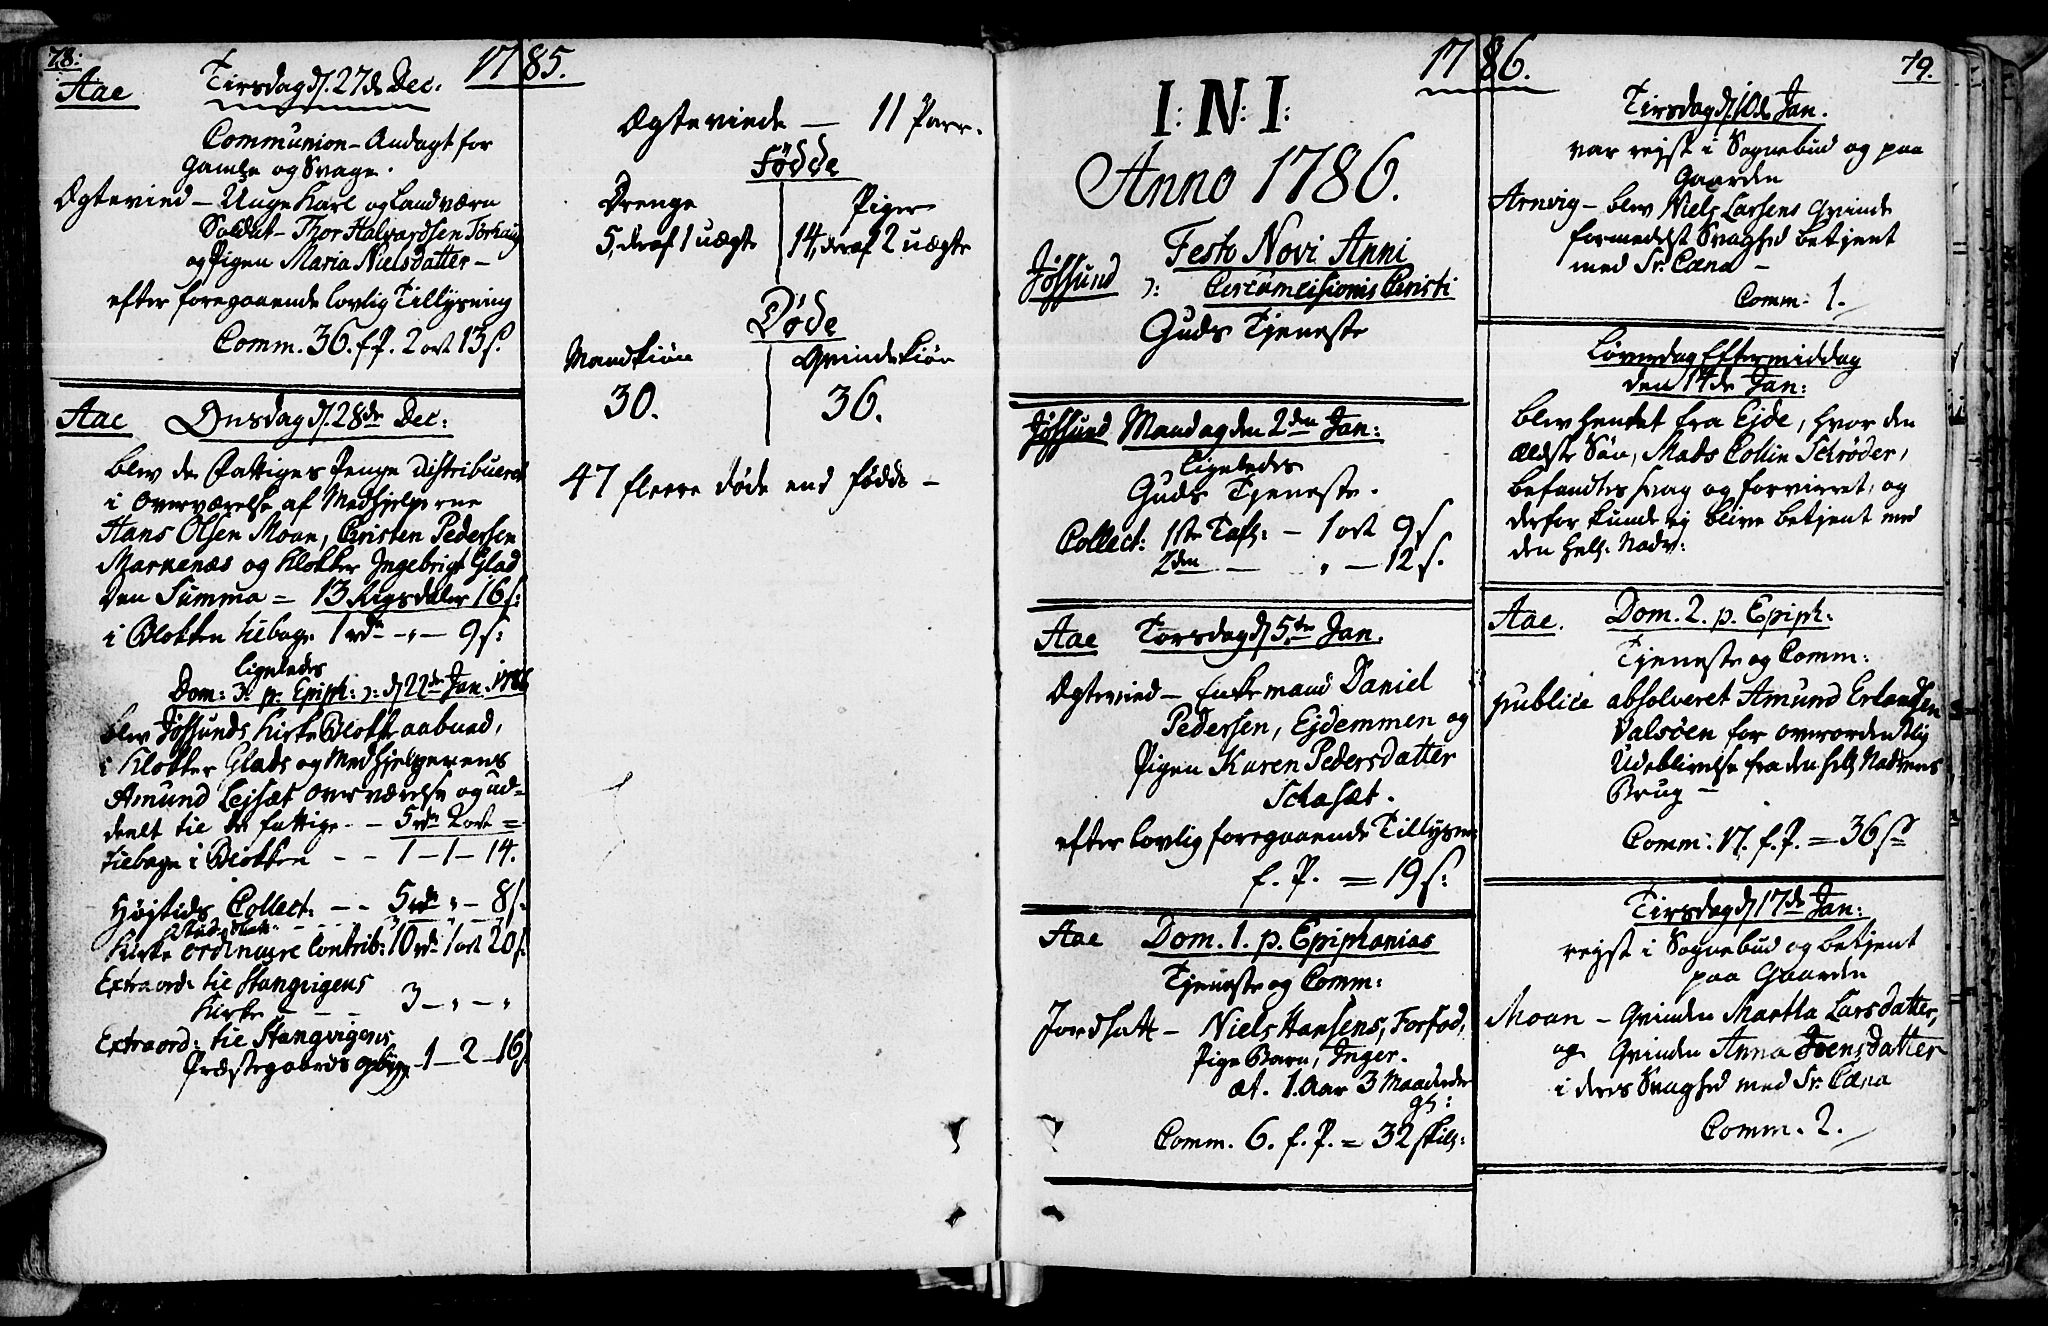 78.
1785.
Aae Tirsdag d. 27de Dec:
Communion-Andagt for
Gamle og Svage.
Ægtevied – Unge Karl og Landværn
Soldat – Thor Halvardsen Torhaug
og Pigen Maria Nielsdatter –
efter foregaaende lovlig Tillysning
Comm. 36. f. P. 2 ort 13 s.
Aae Onsdag d. 28de Dec:
blev de Fattiges Penge distribueret
i Overværelse af Medhjelperne
Hans Olsen Moan, Christen Pedersen
Marknæs og Klokker Ingebrigt Glad
den Summa = 13 Rigsdaler 16 s:
i Blokken tilbage 1 rdr – „ – 9 s:
Ligeledes
Dom: 3. p. Epiph: ɔ: d. 22de Jan. 1786
blev Jøssunds Kirke Blokk aabned,
i Klokker Glads og Medhjelperens
Amund Lejsæt Overværelse og ud-
deelt til de fattige – – 5 rdr 2 ort =
tilbage i Blokken – – 1 – 1 – 14.
Højtids Collect: – – 5 rdr „ – 8 s.
Kirke ordinaire Contrib: 10 rdr 1 ort 20 s.
Extraord: til Stangvigens
Kirke – – – 3 – „ – „
Extraord: til Stangvigens
Præstegaards opbyg. 1 – 2 – 16 s
Ægteviede — 11 Parr.
Fødde
Drenge Piger
5, deraf 1 uægte 14, deraf 2 uægte
Døde
Mandkiøn Qvindekiøn
30. 36.
47 fleere døde end fødde –
1786.
79.
I: N: I:
Anno 1786.
Festo Novi Anni
Jøssund ɔ: Circumcisionis Christi
Guds Tjeneste
Jøssund Mandag den 2den Jan:
Ligeledes
Guds Tjeneste.
Collect: 1ste Tafl: – 1 ort 9 s
2den – „ – 12 s.
Aae Torsdag d. 5te Jan.
Ægteviede – Enkemand Daniel
Pedersen, Ejdemmen og
Pigen Karen Pedersdatter
Schasæt.
efter lovlig foregaaende Tillysn:
f. P. = 19 s:
Aae Dom. 1. p. Epiphanias
Tjeneste og Comm:
Jordsatt – Niels Hansens, Forfod,
Pige Barn, Inger.
æt. 1. Aar 3 Maaneder
gl:
Comm. 6. f. P. = 32 skill:
Tirsdag d. 10de Jan.
var rejst i Sognebud og paa
Gaarden
Arnvig – blev Niels Larsens Qvinde
formedelst Svaghed betjent
med Sr. Cæna –
Comm: 1.
Løverdag Eftermiddag
den 14de Jan:
blev hentet fra Ejde, hvor den
ældste Søn, Mads Collin Schrøder,
befandtes svag og forvirret, og
derfor kunde ej blive betjent med
den Hell: Nadv:
Aae. Dom. 2. p. Epiph:
Tjeneste og Comm:
publice absolveret Amund Erlandsen
Valsøen for overordentlig
Udeblivelse fra den Hell Nadveres
Brug –
Comm: 17. f. P. = 36 s
Tirsdag d. 17de Jan:
rejst i Sognebud og betjent
paa Gaarden
Moan – Qvinden Martha Larsdatter,
og Qvinden Anna Joensdatter
i deres Svaghed med Sr. Cæna
Comm. 2.